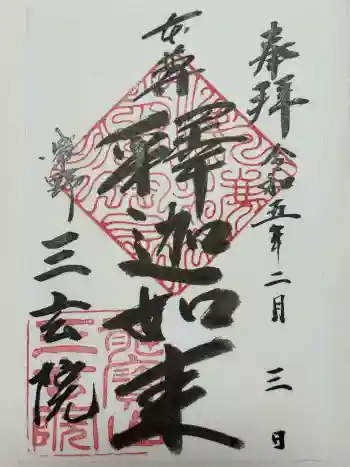 奉拝
令和五年二月三日
本尊
釋迦如来
紫野
三玄院